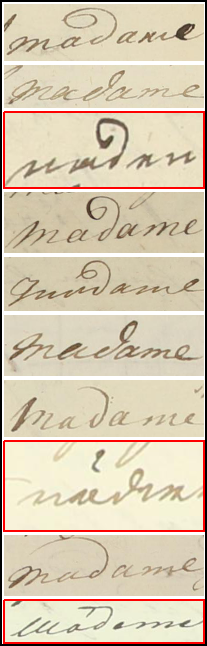 madame
madame
madame
madame
madame
madame
madame
Madame